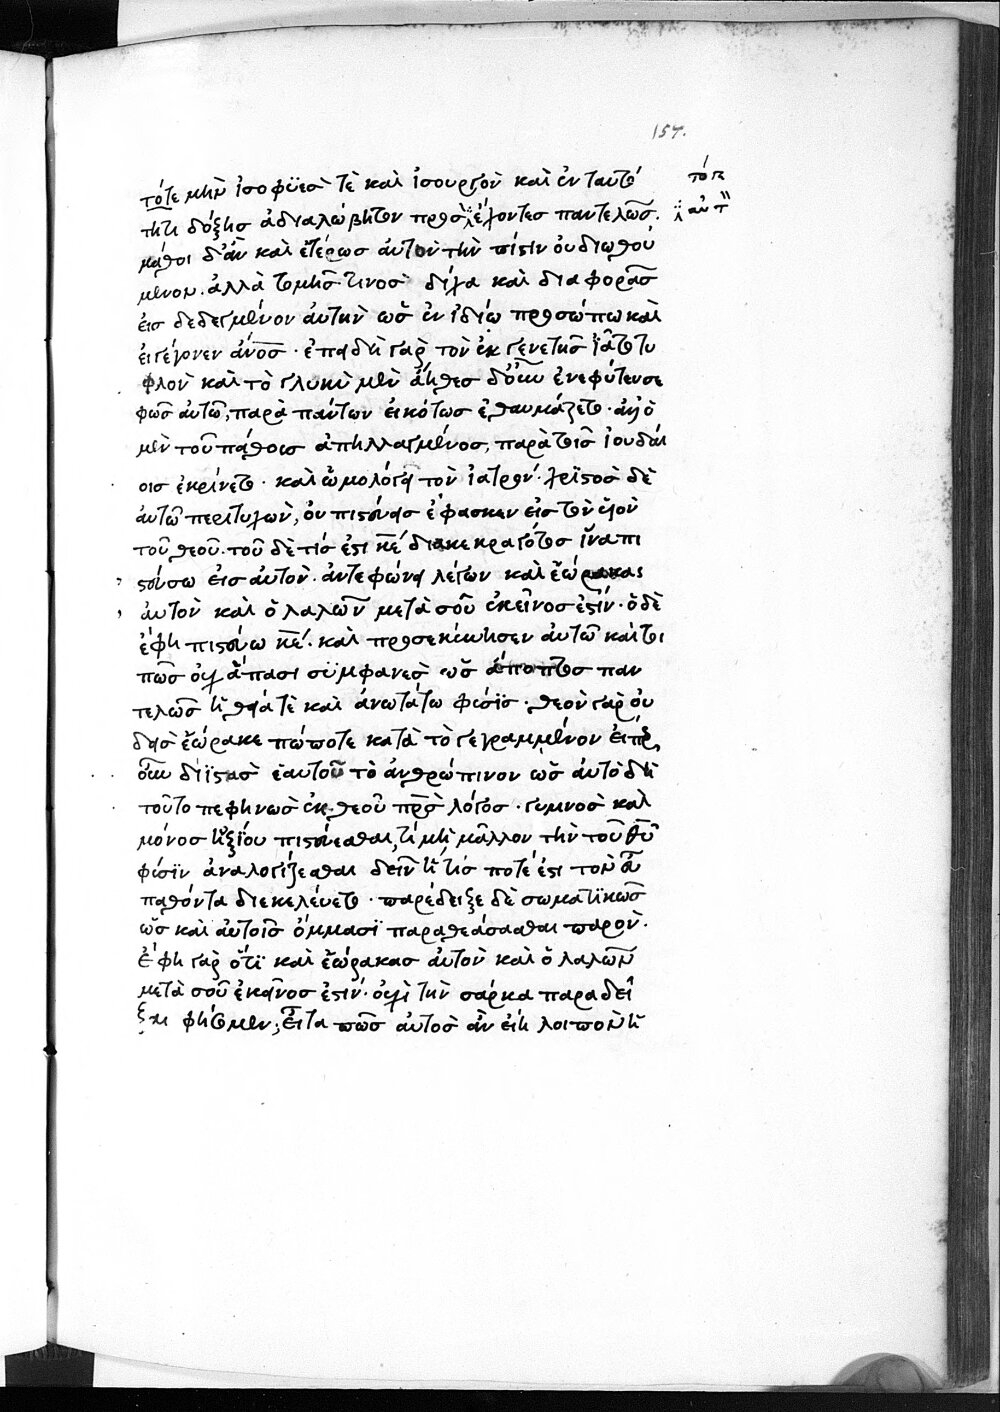 157.
τότε μὴν ἰσοφυές τὲ καὶ ἰσουργὸν καὶ ἐν ταυτό
τητι δόξης ἀδιαλώβητον προσέχοντες παντελῶς.
μάθοι δ' ἂν καὶ ἑτέρως αὐτὸν τὴν πίστιν οὐ διωθού
μενον. ἀλλὰ τομῆς τινος δίχα καὶ διαφορᾶς
εἰσδεδεγμένον αὐτὴν ὡς ἐν ἰδίω προσώπω καὶ
εἰ γέγονεν ἄνος· ἐπειδὴ γὰρ τὸν ἐκ γενετῆς ἰᾶτο τυ
φλὸν καὶ τὸ γλυκὺ μὲν ἄηθες δ' οὖν ἐνεφύτευσε
φῶς αὐτῶ, παρὰ πάντων εἰκότως ἐθαυμάζετο· ἀλλ' ὁ
μὲν τοῦ πάθους ἀπηλλαγμένος, παρὰ τοῖς ἰουδαί
οις ἐκρίνετο· καὶ ὡμολόγει τὸν ἰατρόν· χριστὸς δὲ
αὐτῶ περιτυχὼν, οὐ πιστεύεις ἔφασκεν εἰς τὸν υἱὸν
τοῦ θεοῦ. τοῦ δὲ τίς ἐστι κε διακεκραγότος ἵνα πι
στεύσω εἰς αὐτὸν. ἀντεφώνει λέγων καὶ ἑώρακας
αὐτὸν καὶ ὁ λαλῶν μετὰ σοῦ ἐκεῖνος ἐστίν· ὁ δὲ
ἔφη πιστεύω κε. καὶ προσεκύνησεν αὐτῶ καίτοι
πῶς οὐχ ἅπασι συμφανὲς ὡς ἄποπτος παν
τελῶς ἡ θεία τὲ καὶ ἀνωτάτω φύσις· θεὸν γὰρ οὐ
δεὶς ἑώρακε πώποτε κατὰ τὸ γεγραμμένον εἴπερ
οὖν διϊστὰς ἑαυτοῦ τὸ ἀνθρώπινον ὡς αὐτὸ δὴ
τοῦτο πεφηνὼς ἐκ θεοῦ πρς λόγος· γυμνὸς καὶ
μόνος ἠξίου πιστεύεσθαι, τί μὴ μᾶλλον τὴν τοῦ θυ
φύσιν ἀναλογίζεσθαι δεῖν ἢ τίς ποτέ ἐστι τὸν
παθόντα διεκελεύετο· παρέδειξε δὲ σωματικῶς
ὡς καὶ αὐτοῖς ὄμμασι παραθεάσασθαι παρόν·
ἔφη γὰρ ὅτι καὶ ἑώρακας αὐτὸν καὶ ὁ λαλῶν
μετὰ σοῦ ἐκεῖνος ἐστίν· οὐχὶ τὴν σάρκα παραδεῖ
ξαι φήσομεν; εἶτα πῶς αὐτὸς ἂν εἴη λοιπὸν ἡ